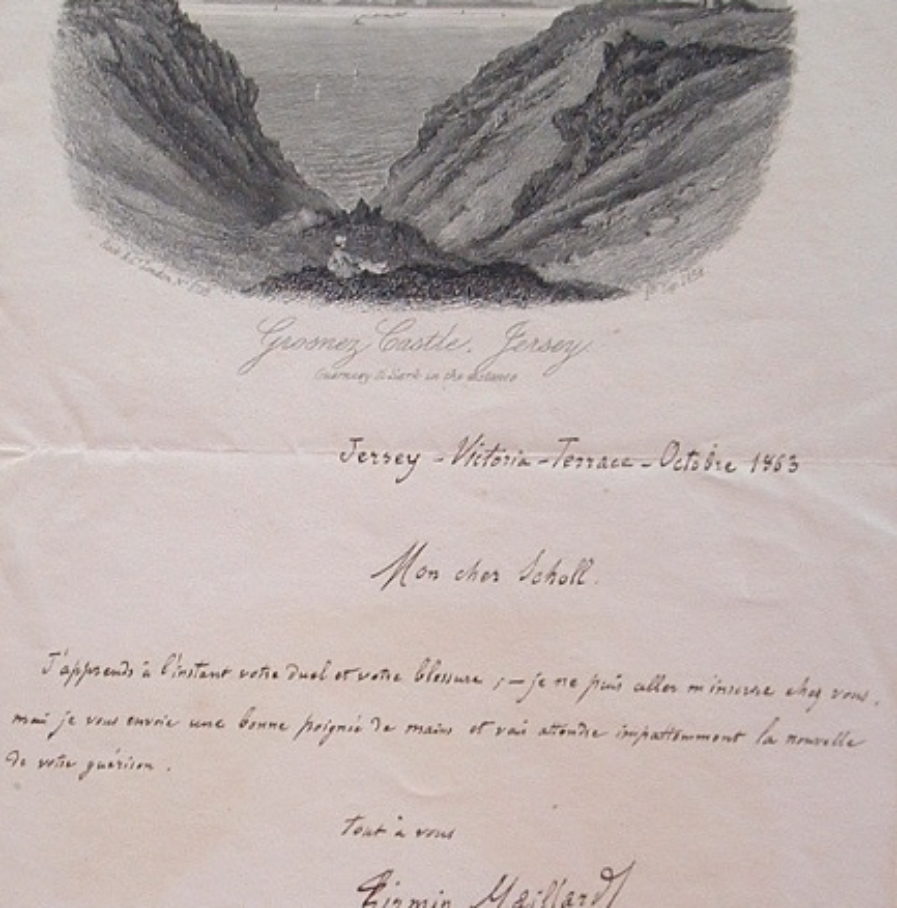 Grosnez Castle. Jersey
Guernsey & Sark in the distance
Jersey - Victoria - Terrace - Octobre 1863
Mon cher Scholl.
J'apprends à l'instant votre duel et votre blessure ; - je ne puis aller m'inscrire chez vous,
mais je vous envoie une bonne poignée de mains et vais attendre impatiemment la nouvelle
de votre guérison.
Tout à vous
Firmin Maillard